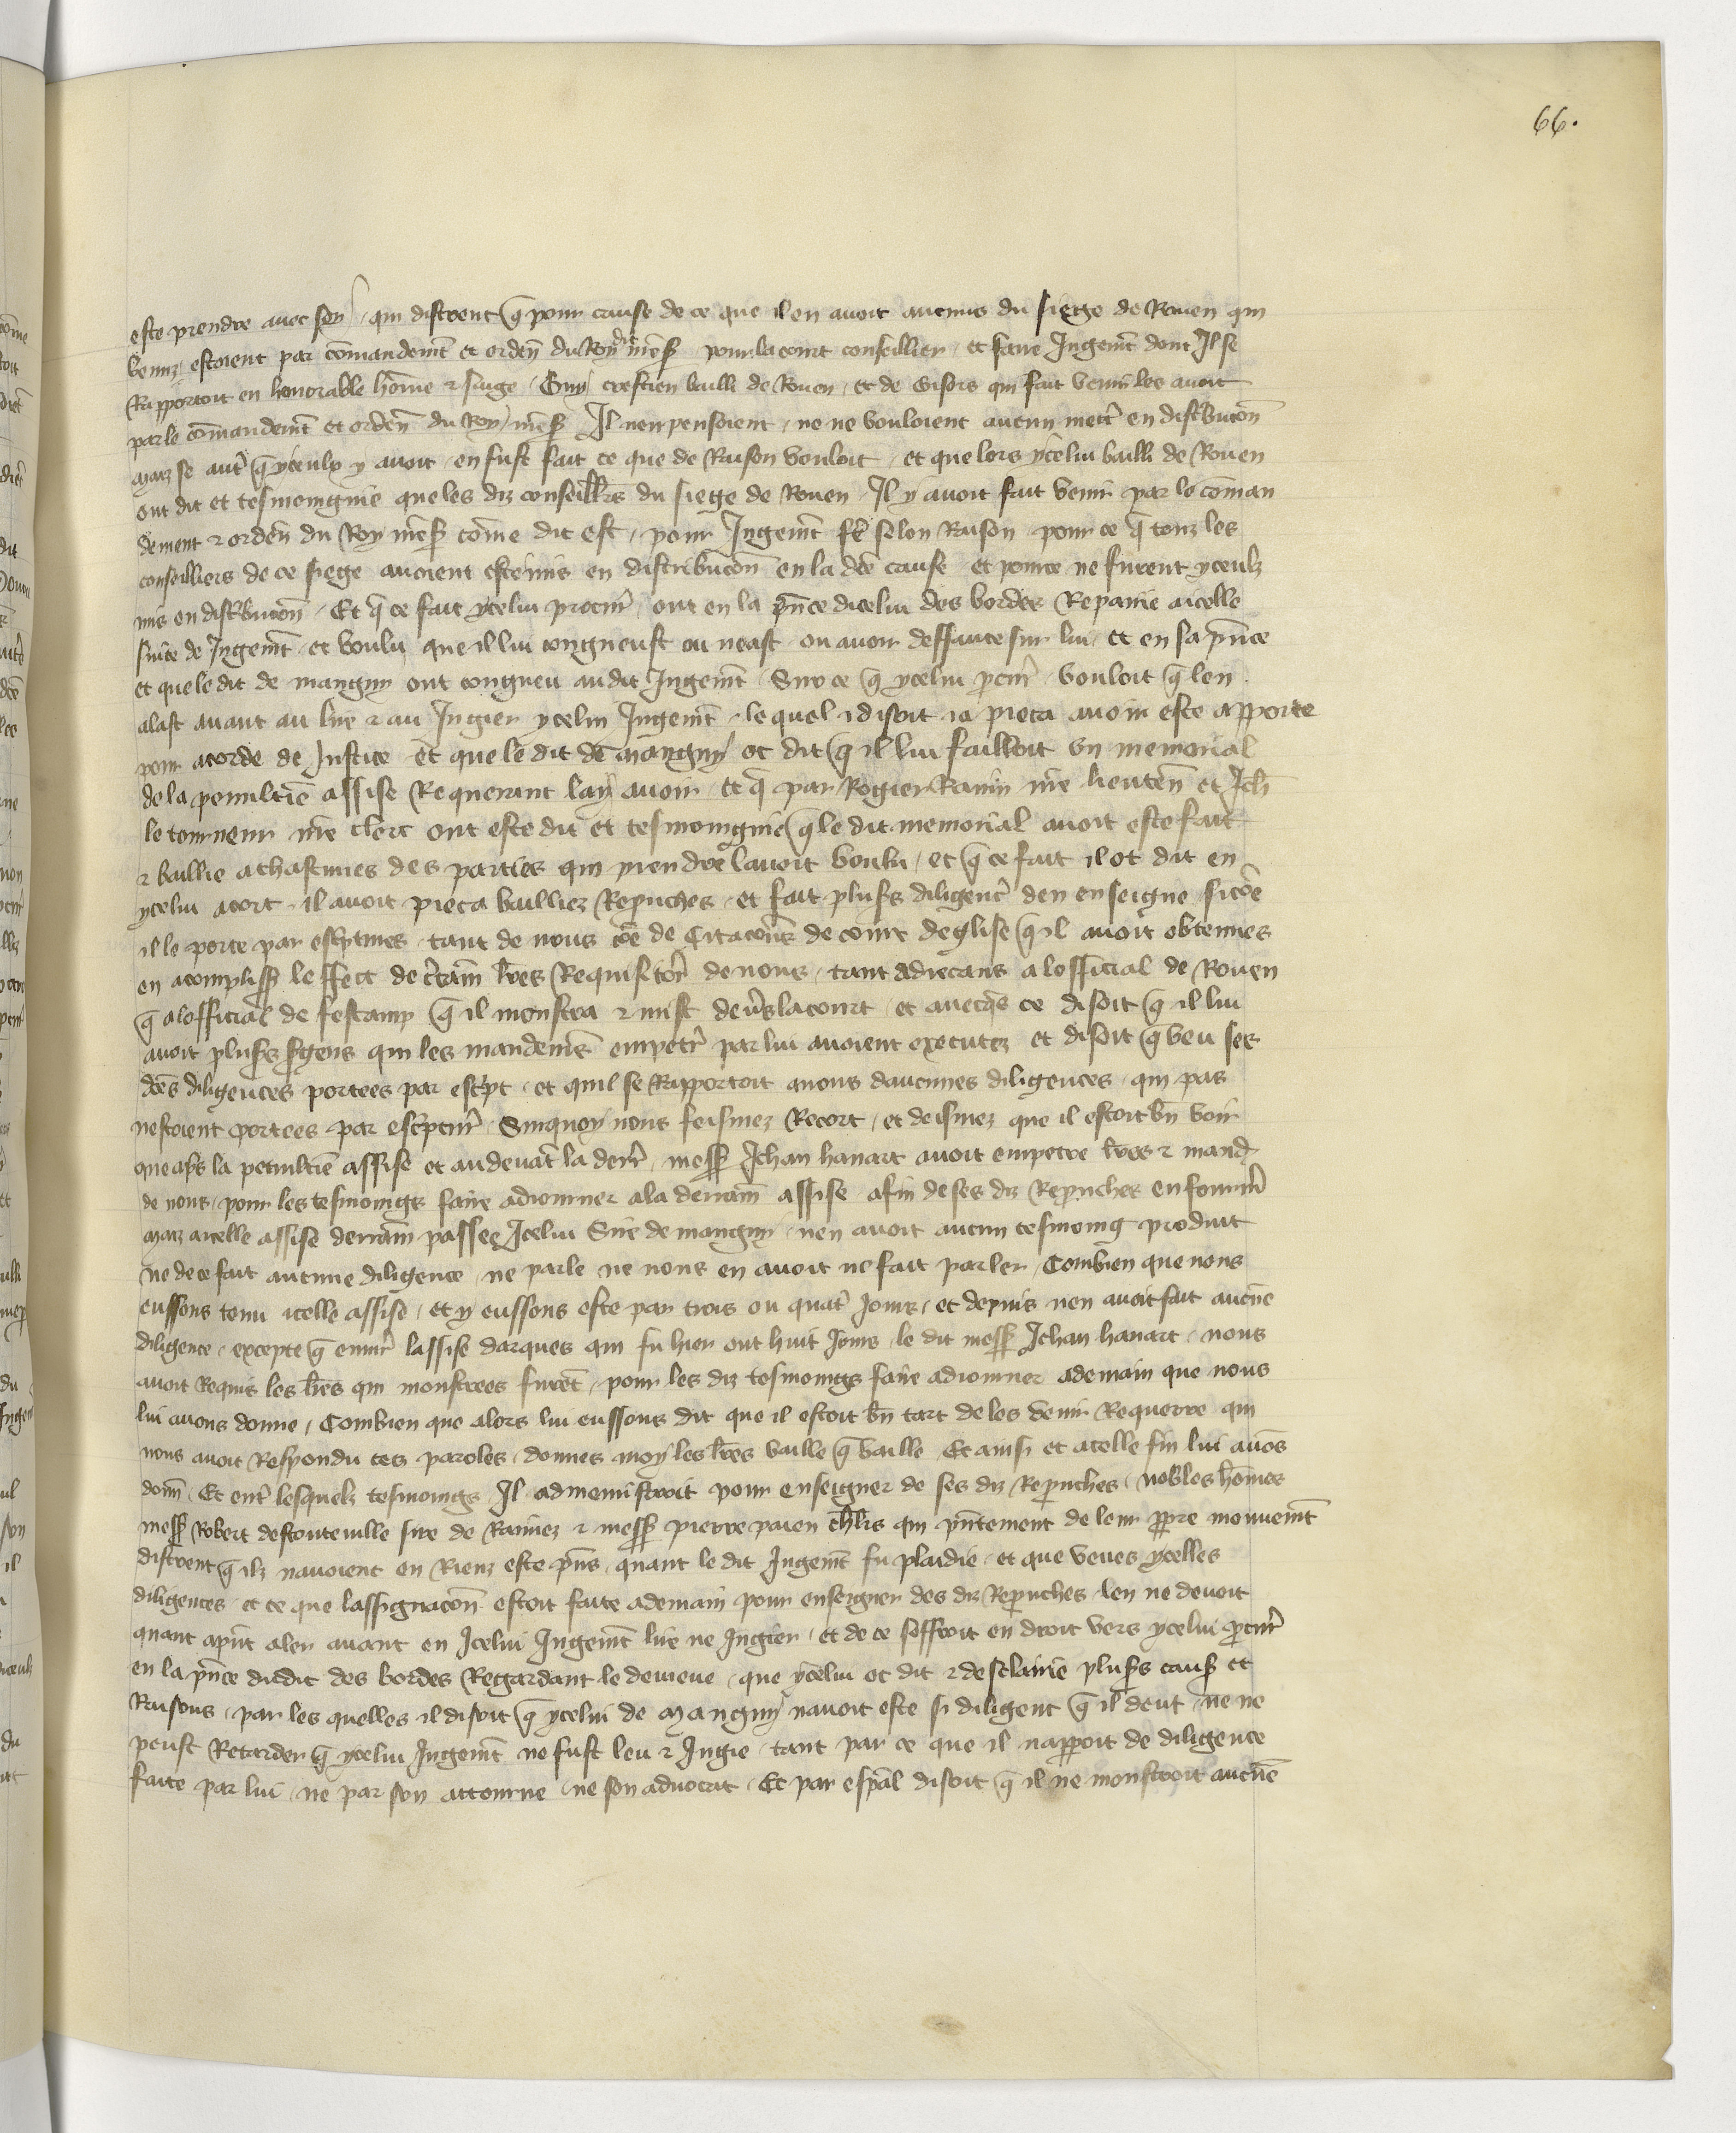 66.
este prendre avec soy, qui distrent q̃ pour cause de ce que il en avoit aucuns du siege de Rouen qui
venuz estoient par cõmandemt et ordeñ du Roy nre s pour la court conseillier, et faire Jugemt dont Il se
Rapportoit en honorable hõme & saige, Guy crestien bailli de Rouen, et de Gisors qui fait venir les avoit
par le cõmandemt et ordeñ du Roy nre s Il nen pensoient, ne ne vouloient aucun mectr en distribucõn
maiz se autr q̃ yceulx y avoit, en fust fait ce que de Raison vouloit, et que lors ycelui bailli de Rouen
out dit et tesmoingnie que les diz conseillrs du siege de Rouen, Il y avoit fait venir par le cõman
dement & ordeñ du Roy nre s cõme dit est, pour Jugemt fe selon Raison pour ce q̃ touz les
conseilliers de ce siege avoient este mis en distribucõn en la dce cause et pour ce ne furent yceulz
mis en distribucõn, Et q̃ ce fait ycelui procur, out en la pñce dicelui des bordes Repairie a icelle
suite de Jugemt et voulu que il lui congneust ou neast, ou avoir deffaute sur lui, et en sa pñce
et que le dit de mangny out congneu au dit Jugemt, Sur ce q̃ ycelui pcur, vouloit q̃ len
alast avant au lire & au Jugier ycelui Jugemt, lequel disoit ia pieca avoir este apporte
pour acorde de Justice et que le dit de mangny ot dit q̃ il lui failloit un memorial
de la penultiẽ assise Requerant lay avoir, et q̃ par Rogier Ranin nre lieuteñ et Jeh
le tourneur nre clerc out este dit et tesmoingnie q̃ le dit memorial avoit este fait
& baillie a chascunes des parties qui prendre lavoit voulu, et q̃ ce fait il ot dit en
ycelui acort, il avoit pieca bailliez Repruches, et fait plusrs diligencs den enseigne sicõe
il le porte par escriptures, tant de nous cõe de Citacõns de court deglise q̃ il avoit obtenues
en acompliss leffect de certam lres Requisitor de nous, tant adrecans a lofficial de Rouen
q̃ alofficial de fescamp q̃ il monstra & mist devs la court, et avecqs ce disoit q̃ il lui
avoit plusrs sgens qui les mandemens empetr par lui avoient executez et disoit q̃ veu ses
dces diligences portees par escript, et quil se Rapportoit a nous daucunes diligences, qui pas
nestoient portees par escriptur, Surquoy nous feismez Recort, et deismez que il estoit bñ voir
que aps la penultiẽ assise et au devat la derr, mess Jehan hanart avoit empetre lres & mand
de nous, pour les tesmoings faire adiourner a la derrain assise afin de ses diz Repruches enfourmr
maiz a icelle assise derrain passee Icelui Sire de mangny, nen avoit aucun tesmoing produit
ne de ce fait aucune diligence, ne parle ne nous en avoit ne fait parler, Combien que nous
eussons tenu icelle assise, et y eussons este par trois ou quatr Jours, et depuis nen avoit fait aucũe
diligence, excepte q̃ envir lassise darques qui fu hier out huit Jours, le dit mess Jehan hanart, nous
avoit Requis les lres qui monstrees furẽt, pour les diz tesmoings faire adiourner a demain que nous
lui avons donne, Combien que alors lui eussons dit que il estoit bñ tart de les venir Requerre qui
nous avoit Respondu tes paroles, donnes moy les lres vaille q̃ vaille, Et ainsi et a telle fin lui avõs
donñ, Et entr lesquelz tesmoings, Il admenistroit pour enseigner de ses diz Repruches, nobles hõmes
mess Robert destouteville sire de Rainez & mess pierre paien chlrs qui pñtement de leur ppre mouvemt
distrent q̃ ilz navoient en Rienz este pñs, quant le dit Jugemt fu plaidie, et que veues ycelles
diligences, et ce que lassignacõn estoit faite a demain pour enseigner des diz Repruches, len ne devoit
quant apnt aler avant en Icelui Jugemt lire ne Jugier, et de ce soffroit en droit vers ycelui pcur
en la pñce dudit des bordes Regardant le demene, que ycelui ot dit & desclairie plusrs caus et
Raisons, par les quelles il disoit q̃ ycelui de mangny navoit este si diligent q̃ il deut, ne ne
peust Retarder q̃ ycelui Jugemt ne fust leu & Jugie, tant par ce que il napport de diligence
faite par lui, ne par son attourne, ne son advocat, Et par espal disoit q̃ il ne monstroit aucũe